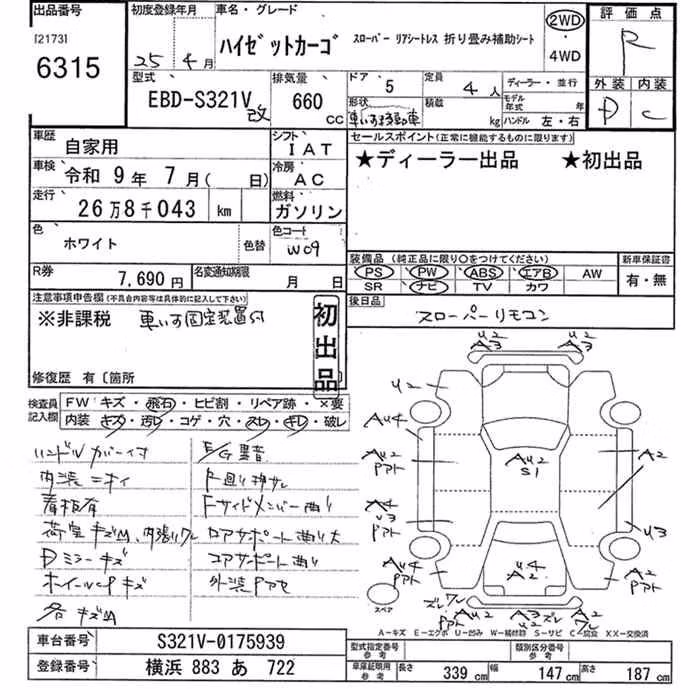 出品番号
[2173]
6315
初度登録年月
25年4月
車名・グレード
ハイゼットカーゴ
スローパー リアシートレス 折り畳み補助シート
2WD
・
4WD
評価点
R
外装 内装
D C
型式
EBD-S321V 改
排気量
660
CC
ドア
5
形状
定員
4 人
積載
kg
ディーラー・並行
モデル年式 年
ハンドル 左・右
車歴
自家用
シフト
IAT
車検
令和 9 年 7 月( 日)
冷房
AC
走行
26万8千043 km
燃料
ガソリン
色
ホワイト
色替
色コード
W09
R券
7,690 円
名変通知期限
月 日
セールスポイント(正常に機能するものに限ります)
★ディーラー出品 ★初出品
装備品(純正品に限り○をつけてください)
PS PW ABS エアB AW
SR ナビ TV カワ
新車保証書
有・無
後日品
スローパーリモコン
注意事項申告欄(不具合内容等は具体的に記入して下さい)
※非課税 車いす固定装置付
初出品
修復歴 有〔箇所
検査員記入欄
FW キズ・飛石・ヒビ割・リペア跡・×要
内装 キズ・汚レ・コゲ・穴・スレ・キレ・破レ
ハンドルカバー付
内装ニオイ
看板有
荷室キズM、内張りワレ
Dミラーキズ
ホイールCPキズ
各キズM
E/G異音
F廻り押サレ
Fサイドメンバー曲り
ロアサポート曲り大
コアサポート曲り
外装Pアセ
U2
A3
U2
A3
U2
AU4
AU2
Pアト
AU2
S1
A2
A4
U3
Pアト
U3
AU4
Pアト
U4
A2
A2
Pアト
スペア
ズレワレ
AU2
Pアト
A3
U2
ズレ
A2
ワレ
A-キズ E-エクボ U-凹み W-補修跡 S-サビ C-腐食 XX-交換済
車台番号
S321V-0175939
登録番号
横浜 883 あ 722
型式指定番号
参考
類別区分番号
参考
車庫証明用
参考
長さ 339 cm 幅 147 cm 高さ 187 cm